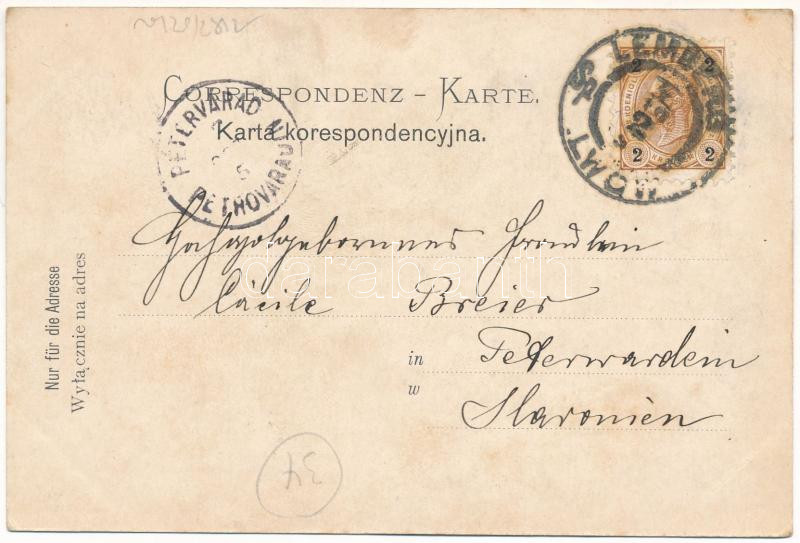 CORRESPONDENZ – KARTE.
Karta korespondencyjna.
PÉTERVÁRAD
PETROVARAD
5
LEMBERG
LWÓW
2 2
2 2
Hochwohlgeborenes Fräulein
Cäcilie Breier
in Peterwardein
w
Slavonien
Nur für die Adresse
Wyłącznie na adres
darabanth
34